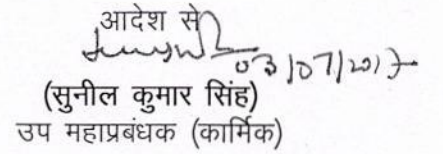 आदेश से
03/07/2017
(सुनील कुमार सिंह)
उप महाप्रबंधक (कार्मिक)